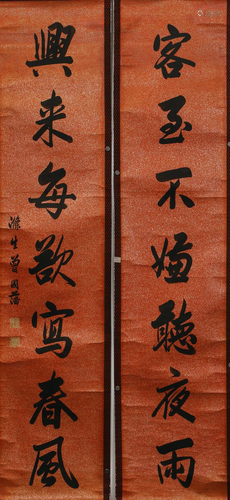 客至不嫌聽夜雨
興来每欲寫春風
滌生曾国藩